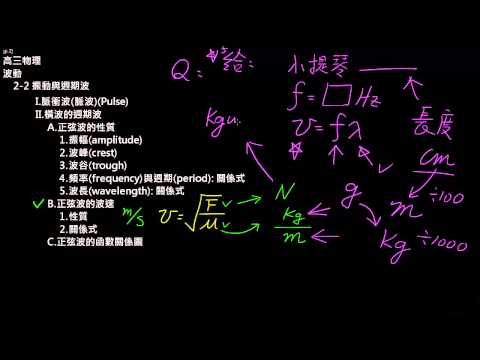 高三物理
波動
2-2 振動與週期波
I.脈衝波(脈波)(Pulse)
II.橫波的週期波
A.正弦波的性質
1.振幅(amplitude)
2.波峰(crest)
3.波谷(trough)
4.頻率(frequency)與週期(period): 關係式
5.波長(wavelength): 關係式
B.正弦波的波速
1.性質
2.關係式
C.正弦波的函數關係圖
Q: 給: 小提琴
f = □ Hz
v = fλ
長度
cm
÷100
m
g
Kg ÷1000
N
Kg
m
m/s v = √F/μ